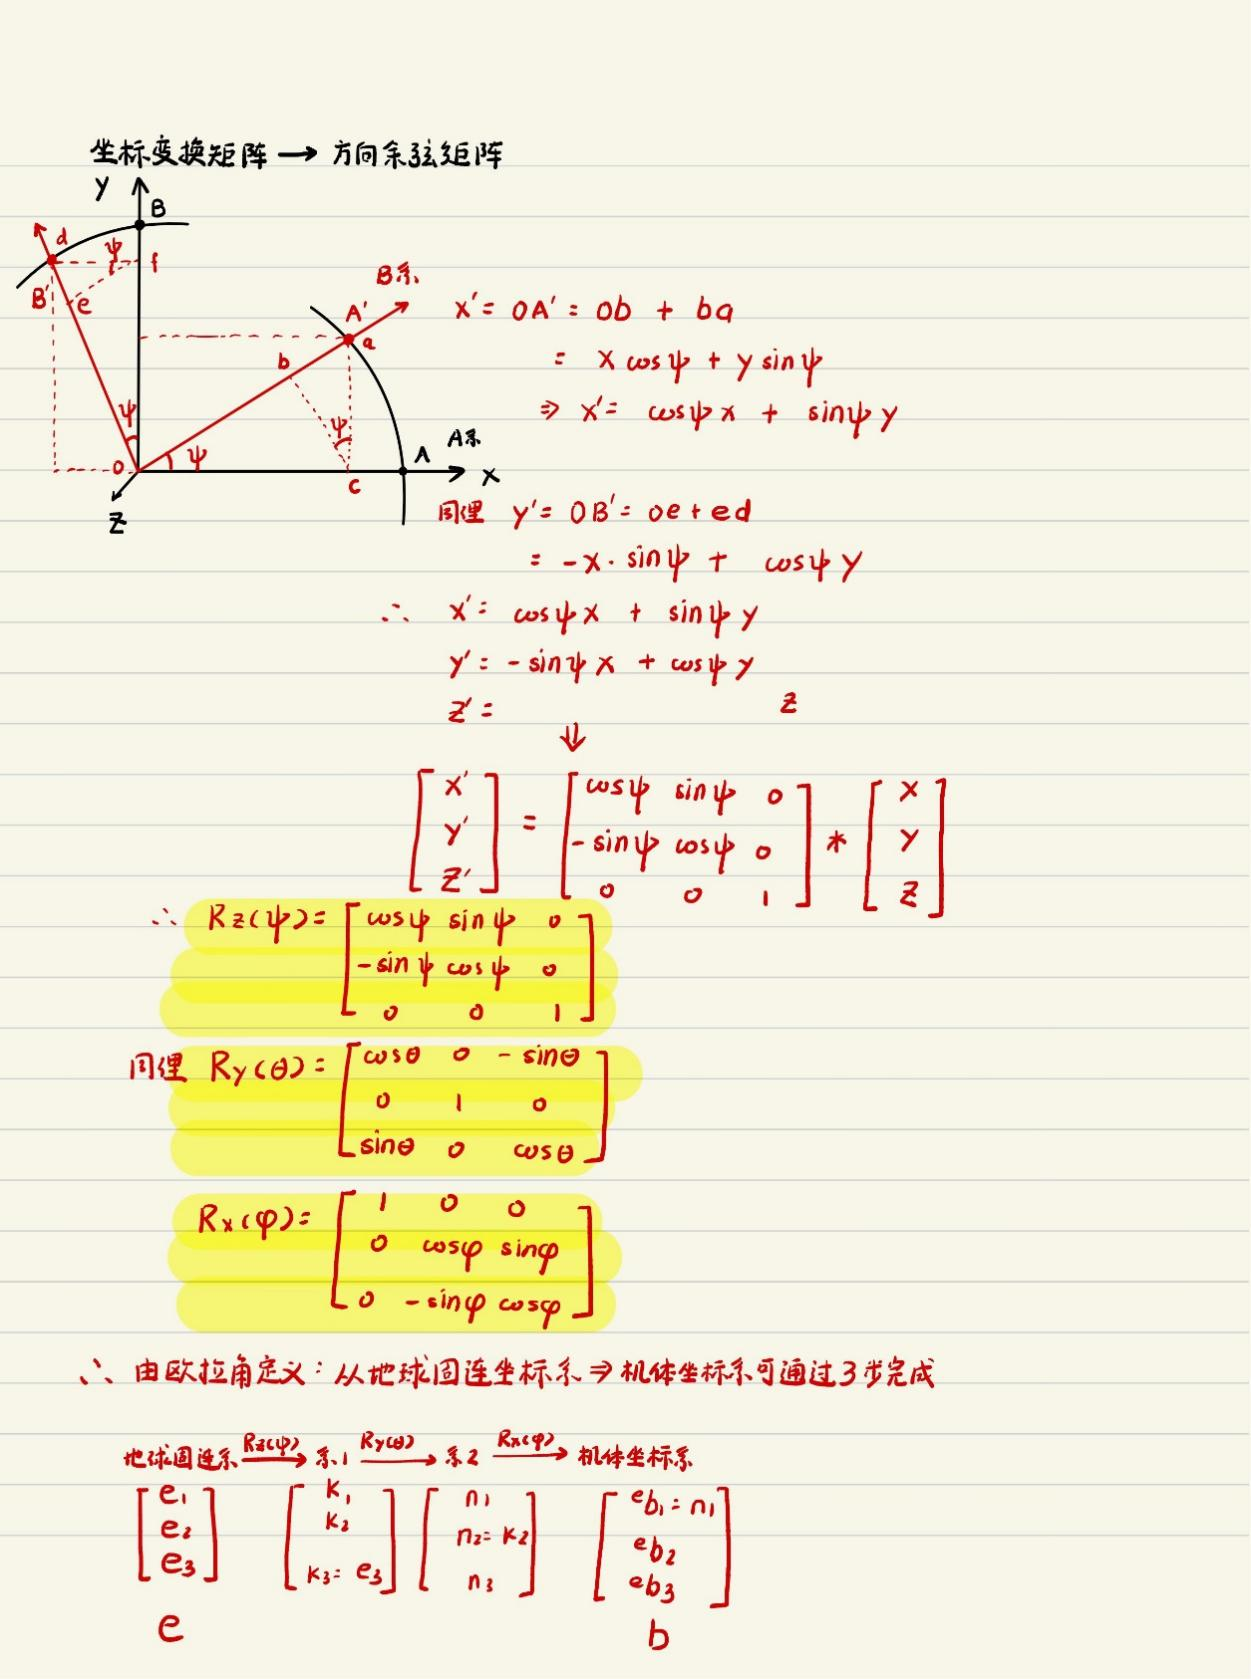 坐标变换矩阵 → 方向余弦矩阵
Y
B
d
ψ
f
B'
e
B系
A'
a
b
ψ
ψ
ψ
A系
O
A
X
c
Z
x' = OA' = Ob + ba
= x cosψ + y sinψ
⇒ x' = cosψ x + sinψ y
同理 y' = OB' = oe + ed
= -x · sinψ + cosψ y
∴ x' = cosψ x + sinψ y
y' = -sinψ x + cosψ y
z' = z
⇓
[x' y' z'] = [cosψ sinψ 0
-sinψ cosψ 0
0 0 1] * [x y z]
∴ Rz(ψ) = [cosψ sinψ 0
-sinψ cosψ 0
0 0 1]
同理 Ry(θ) = [cosθ 0 -sinθ
0 1 0
sinθ 0 cosθ]
Rx(φ) = [1 0 0
0 cosφ sinφ
0 -sinφ cosφ]
∴ 由欧拉角定义:从地球固连坐标系 ⇒ 机体坐标系可通过3步完成
地球固连系 Rz(ψ)→ 系1 Ry(θ)→ 系2 Rx(φ)→ 机体坐标系
e1 k1 n1 eb1 = n1
e2 k2 n2 = k2 eb2
e3 k3 = e3 n3 eb3
e b